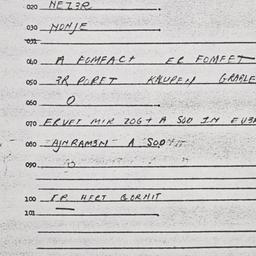 020 NEZ3R
030 NONJE
032
040 A FOMFACT ER FOMFET
050 3R PORET KAUPEN GRABLE
060 O
070 ERVET MIR ZOGT A SOD IN EU3R
080 AJNRAM3N A SOD
090 O
100 ER HERT GORNIT
101